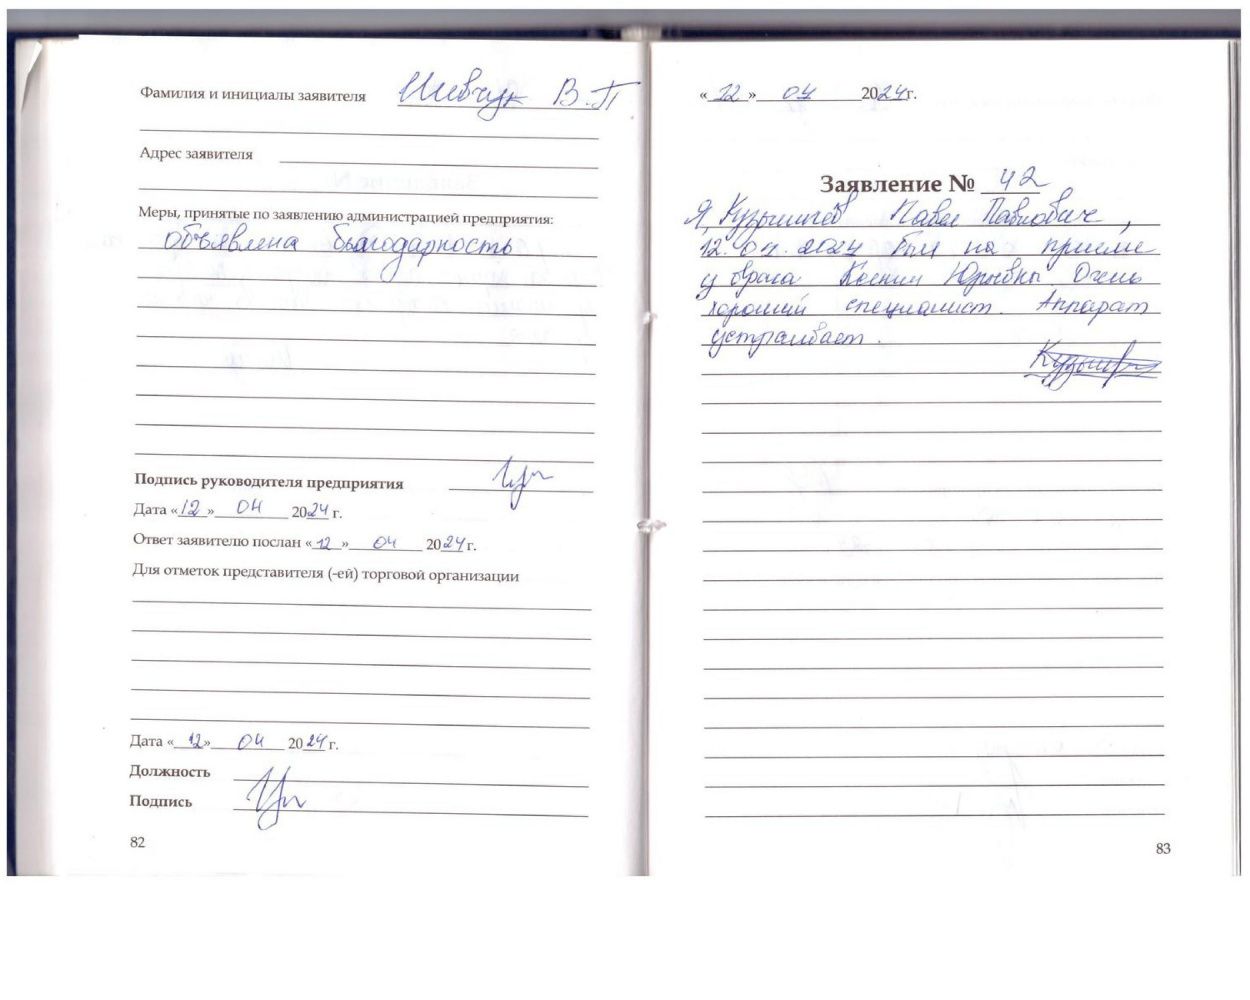 Фамилия и инициалы заявителя Шевчук В.П
Адрес заявителя
Меры, принятые по заявлению администрацией предприятия:
объявлена благодарность
Подпись руководителя предприятия
Дата «12» 04 2024 г.
Ответ заявителю послан «12» 04 2024 г.
Для отметок представителя (-ей) торговой организации
Дата «12» 04 2024 г.
Должность
Подпись
82
«12» 04 2024г.
Заявление № 42
Я, Павел Павлович,
12.04.2024 был на приеме
у врача Ксении Юрьевны Очень
хороший специалист. Аппарат
устраивает.
83